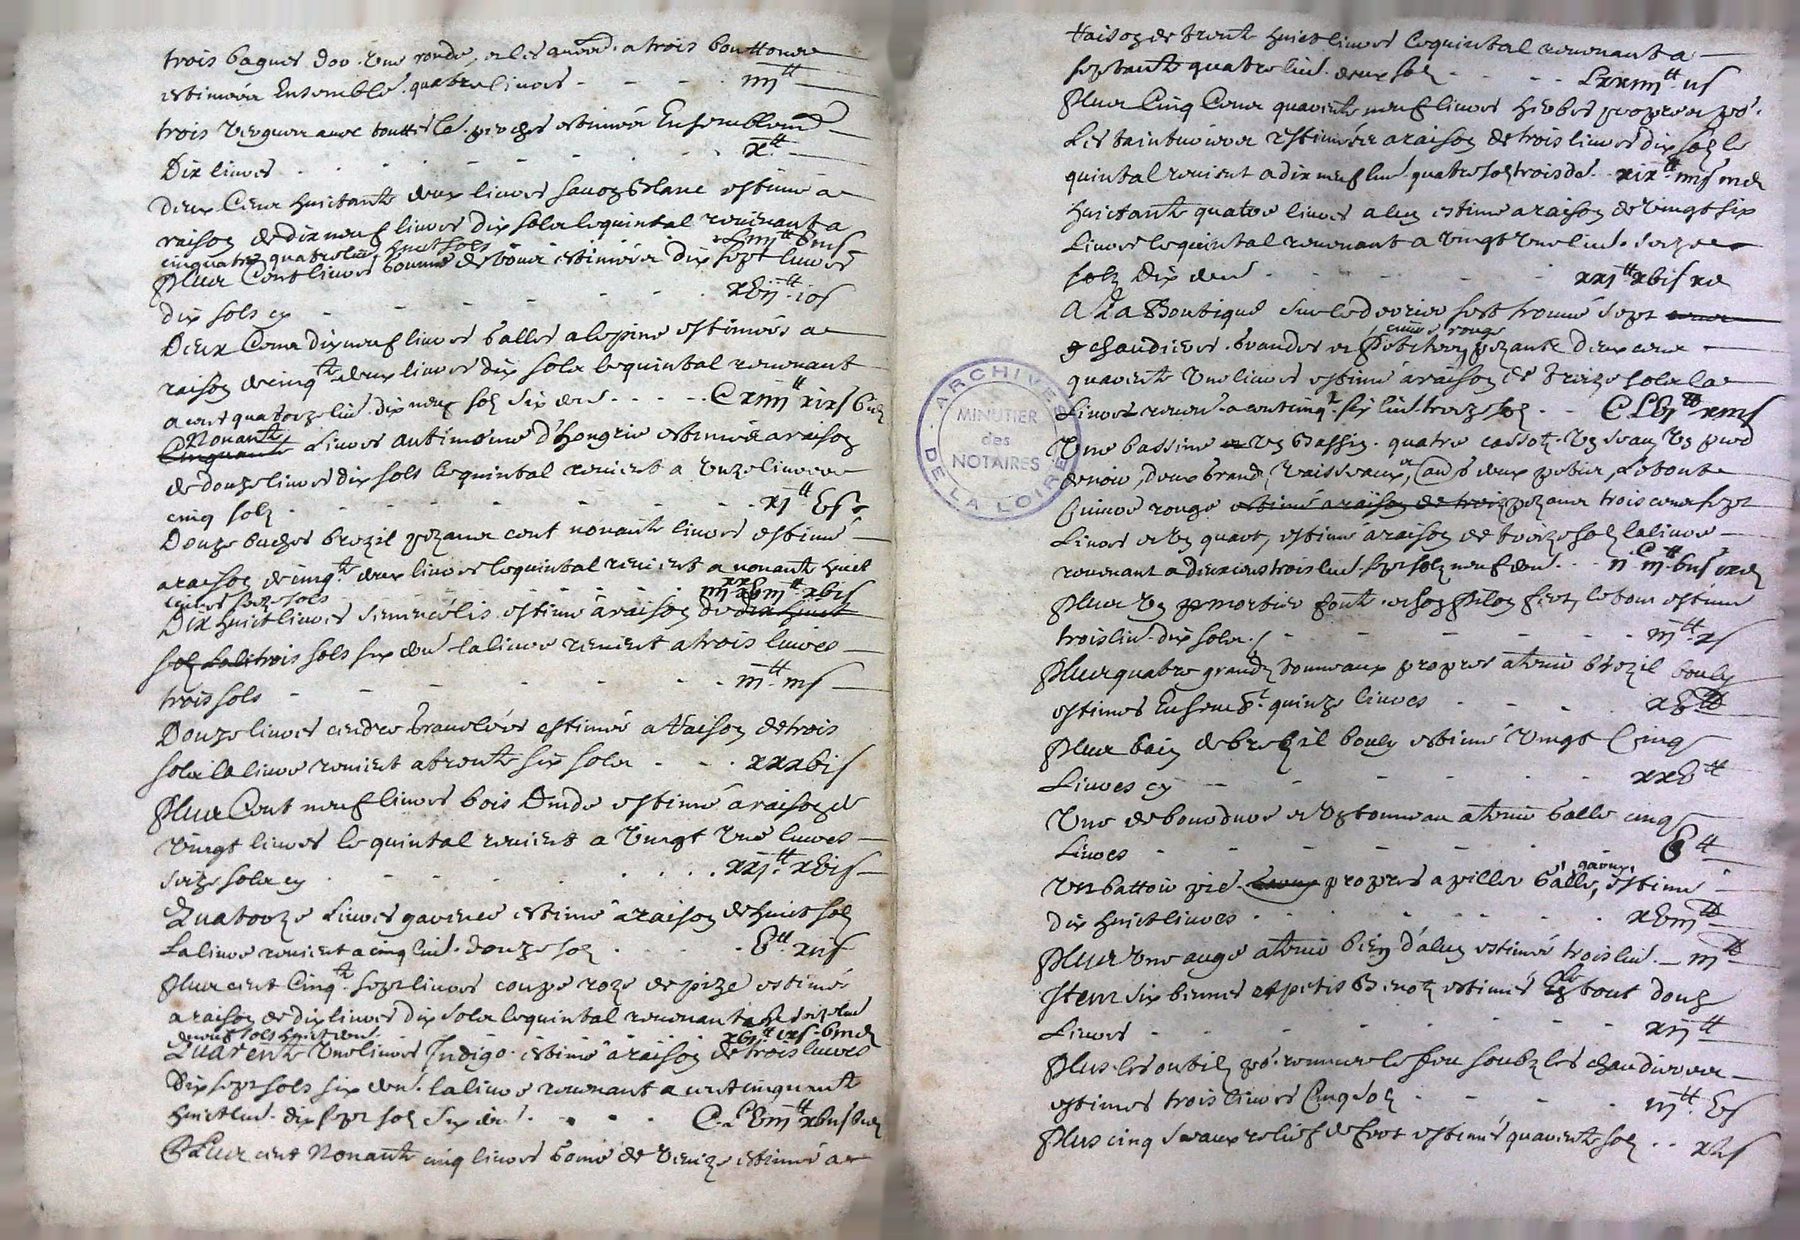 trois bagues d'or une ronde, et les autres a trois bouttons
estimées Ensemble quatre livres - - - iiij ₶
trois vergues avec touttes les estimées Ensemblem.t
Dix livres - - - x ₶
deux Cens huictante deux livres savoz blanc estimé a
raison de dix neuf livres dix solz le quintal revenant a
cinquante quatre liv. huict solz Liiij ₶ viij s
Plus Cent livres gomme de estimées dix sept livres
dix sols cy - - - xvij ₶ ios
Deux Cens dix neuf livres galles alepine estimées a
raison de cinq.te deux livres dix solz le quintal revenant
a cent quatorze liv. dix neuf solz six den. - - - C xiiij ₶ xix s vi d
Nonante
Cinquante Livres antimoine d'Hongrie estimée a raison
de douze livres dix sols le quintal revient a unze livres
cinq solz - - - xj ₶ v s
Douze buches brezil pezans cent nonante livres estimé
a raison de cinq.te deux livres le quintal revient a nonante huict
livres seize sols xviij ₶ xvi s
Dix huict livres estimé a raison de dix huict
solz trois sols six den. la livre revient a trois livres
trois sols - - - iij ₶ iij s
Douze livres cendre gravelées estimée a raison de trois
solz la livre revient a trente six solz - - - xxxvi s
Plus Cent neuf livres bois d'inde estimé a raison de
vingt livres le quintal revient a vingt une livres
seize solz cy - - - xxj ₶ xvi s
Quatorze livres garence estimé a raison de huict solz
La livre revient a cinq liv. douze solz - - - v ₶ xij s
Plus cent cinq.te sept livres coupe roze de pize estimée
a raison de dix livres dix solz le quintal revenant a seize liv.
neuf solz huict den. xvj ₶ ix s viij d
Quarente une livres Indigo estimé a raison de trois livres
Dix sept sols six den. la livre revenant a cent cinquante
huict liv. dix sept solz six d. - - - C Lviij ₶ xvij s vi d
Plus cent Nonante cinq livres de estimé a
Raison de trente huict livres le quintal revenant a
septante quatre liv. deux solz - - - Lxxiiij ₶ ij s
Plus Cinq Cens quarente neuf livres herbes propres p.r
Les tainturiers estimées a raison de trois livres dix solz le
quintal revient a dix neuf liv. quatre solz trois d. - xix ₶ iiij s iij d
Huictante quatre livres alun estimé a raison de vingt six
Livres le quintal revenant a vingt une liv. seize
solz dix den. - - - xxj ₶ xvi s x d
A La Boutique sur le derrier sest trouvé sept
cuivre rouge
chaudieres grandes et pezant deux cens
quarente une livres estimé a raison de treize solz la
Livre reven. a cent cinq.te six liv. treize solz - - C Lvj ₶ xiij s
Une bassine et un bassin quatre cassotz un seau un
de noir, deux grandz vaisseaux, deux Letout
Cuivre rouge estimé a raison de trois pezans trois cens sept
Livres et un quart, estimé a raison de treize solz la livre
revenant a deux cens trois liv. sept solz neuf den. - - ij C iij ₶ vij s ix d
Plus un mortier font et son pilon fert, le tout estimé
trois liv. dix solz - - - iij ₶ x s
Plus quatre grandz tonneaux propres a tenir brezil bouly
estimes Ensem.ble quinze livres - - - xv ₶
Plus bain de brezil bouly estimé vingt Cinq
Livres cy - - - xxv ₶
Une et un tonneau a tenir galle cinq
Livres - - - v ₶
garence
Un battoir propres a piller galle, estimé
dix huict livres - - - xviij ₶
Plus une auge a tenir d'alun estimée trois liv. - iij ₶
Item six bennes et petis benotz estimés le tout douze
Livres - - - xij ₶
Plus les outilz p.r remuer le feu soubz les chaudieres
estimes trois livres Cinq solz - - - iij ₶ v s
Plus cinq seaux de fert estimés quarente solz - - xL s
ARCHIVES DE LA LOIRE
MINUTIER
des
NOTAIRES